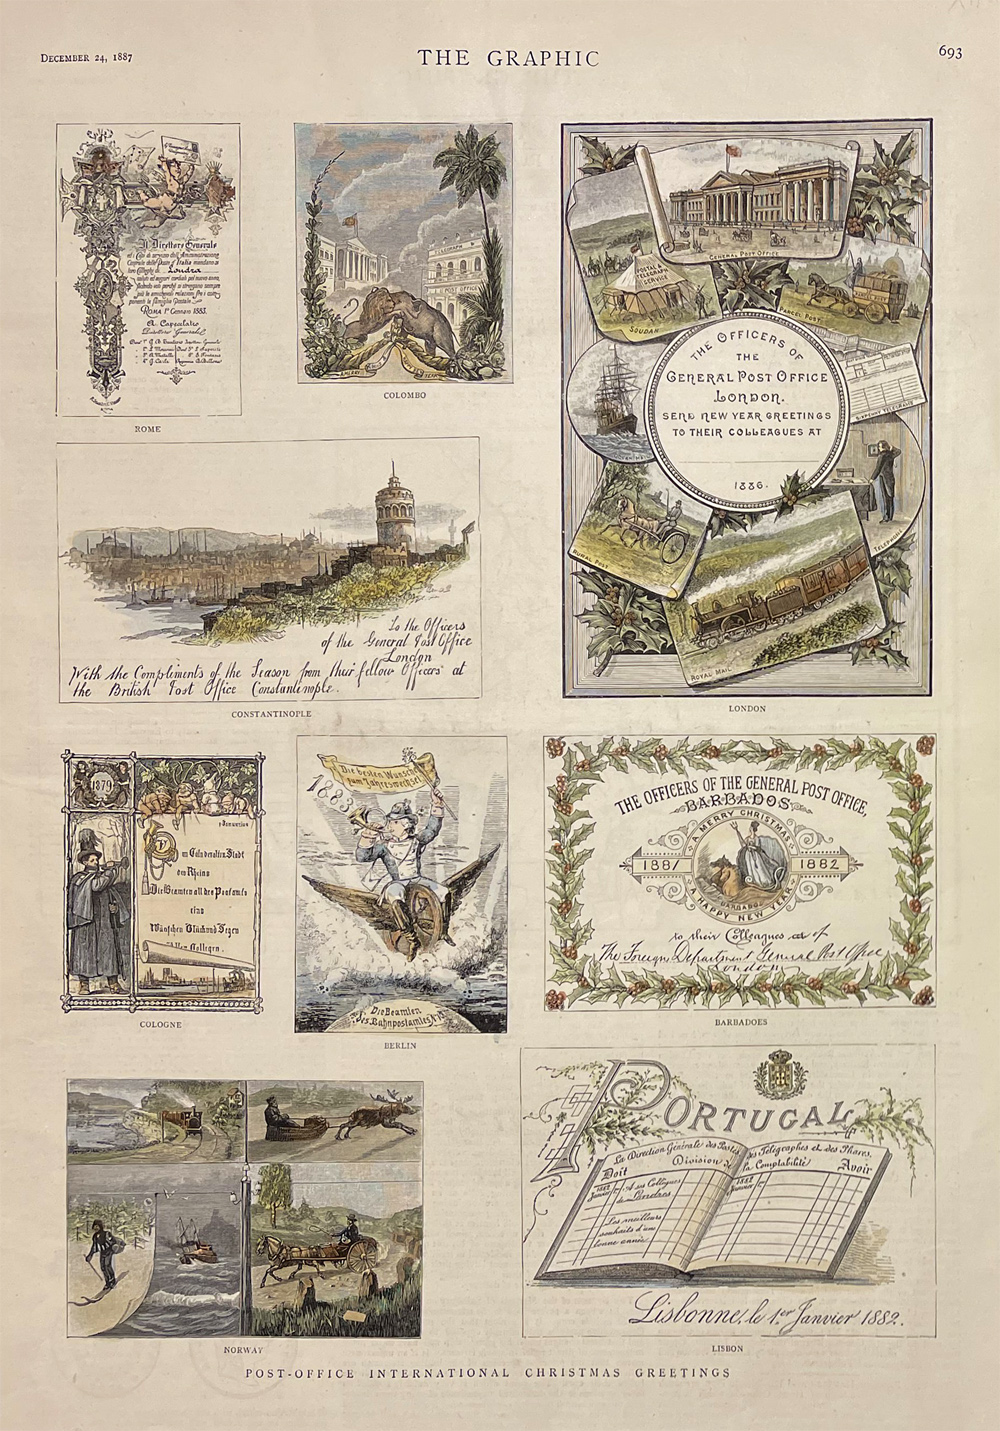 DECEMBER 24, 1887
THE GRAPHIC
693
Il Direttore Generale
Londra
ROMA 1º Gennaio 1883.
A. Capecelatro
Direttore Generale
ROME
TELEGRAPH
POST OFFICE
A MERRY
YEAR
COLOMBO
GENERAL POST OFFICE
POSTAL &
TELEGRAPH
SERVICE
SOUDAN
PARCEL POST
SIXPENNY TELEGRAMS
THE OFFICERS OF
THE
GENERAL POST OFFICE
LONDON.
SEND NEW YEAR GREETINGS
TO THEIR COLLEAGUES AT
1886.
RURAL POST
TELEPHONE
ROYAL MAIL
LONDON
To the Officers
of the General Post Office
London
With the Compliments of the Season from their fellow Officers at
the British Post Office Constantinople.
CONSTANTINOPLE
1879
1 Januarius
am Rheino
Die Beamten all des Postamts
eino
Wünschen Glück und Segen
Allen Collegen.
COLOGNE
Die besten Wünsche
zum Jahreswechsel
1883
Die Beamten
des Bahnpostamtes
BERLIN
THE OFFICERS OF THE GENERAL POST OFFICE,
BARBADOS.
A MERRY CHRISTMAS
1881
1882
BARBADOS
A HAPPY NEW YEAR
to their Colleagues at of
The Foreign Department General Post Office
London
BARBADOES
NORWAY
PORTUGAL
La Direction Générale des Postes
des Télégraphes et des Phares.
Doit
Division
la Comptabilité
Avoir
1882
Janvier
A ses Collègues
de Londres
Les meilleurs
souhaits d'une
bonne année.
1882
Janvier
Lisbonne, le 1er Janvier 1882.
LISBON
POST-OFFICE INTERNATIONAL CHRISTMAS GREETINGS